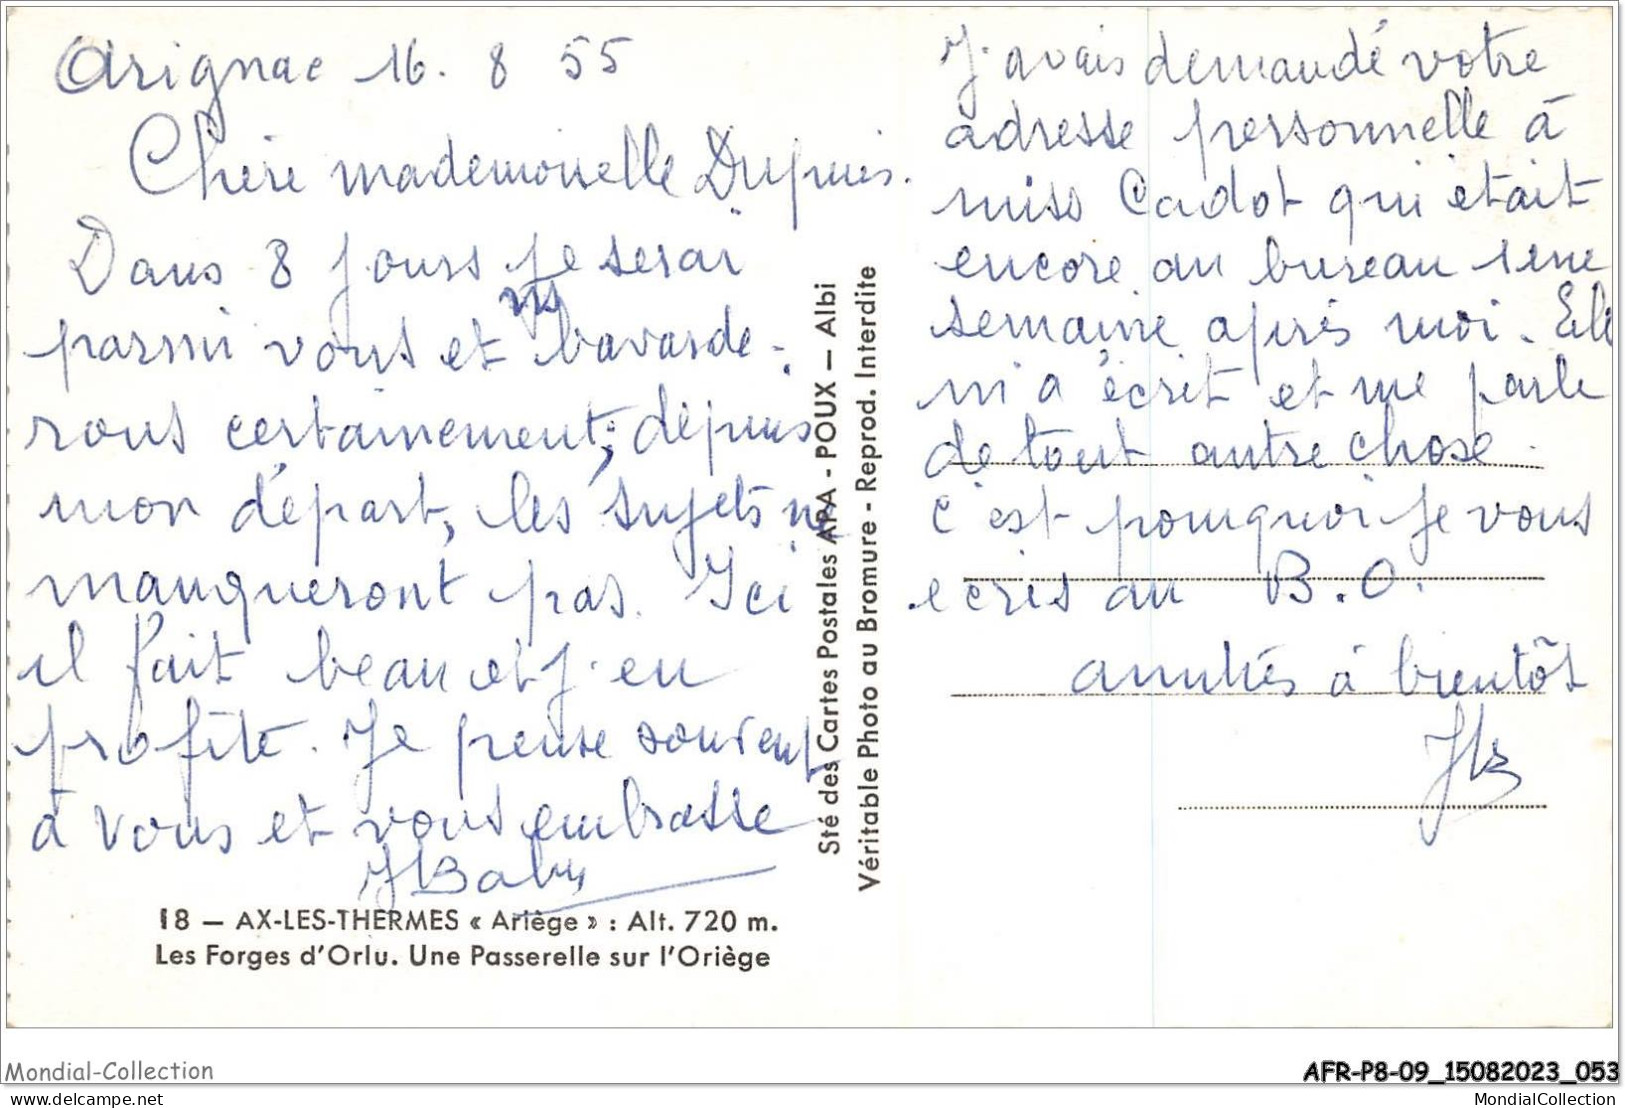 Arignac 16. 8 55
Chère mademoiselle Dupuis.
Dans 8 jours je serai
parmi vous et ns bavarde-
rons certainement; depuis
mon départ, les sujets ne
manqueront pas. Ici
il fait beau et j'en
profite. Je pense souvent
à vous et vous embrasse
18 — AX-LES-THERMES « Ariège » : Alt. 720 m.
Les Forges d'Orlu. Une Passerelle sur l'Oriège
Sté des Cartes Postales APA - POUX — Albi
Véritable Photo au Bromure - Reprod. Interdite
J'avais demandé votre
adresse personnelle à
miss Cadot qui était
encore au bureau 1 ene
semaine après moi. Elle
m'a écrit et me parle
de tout autre chose.
C'est pourquoi je vous
écris au B.O.
amitiés à bientôt
Mondial-Collection
AFR-P8-09_15082023_053
delcampe.net
MondialCollection